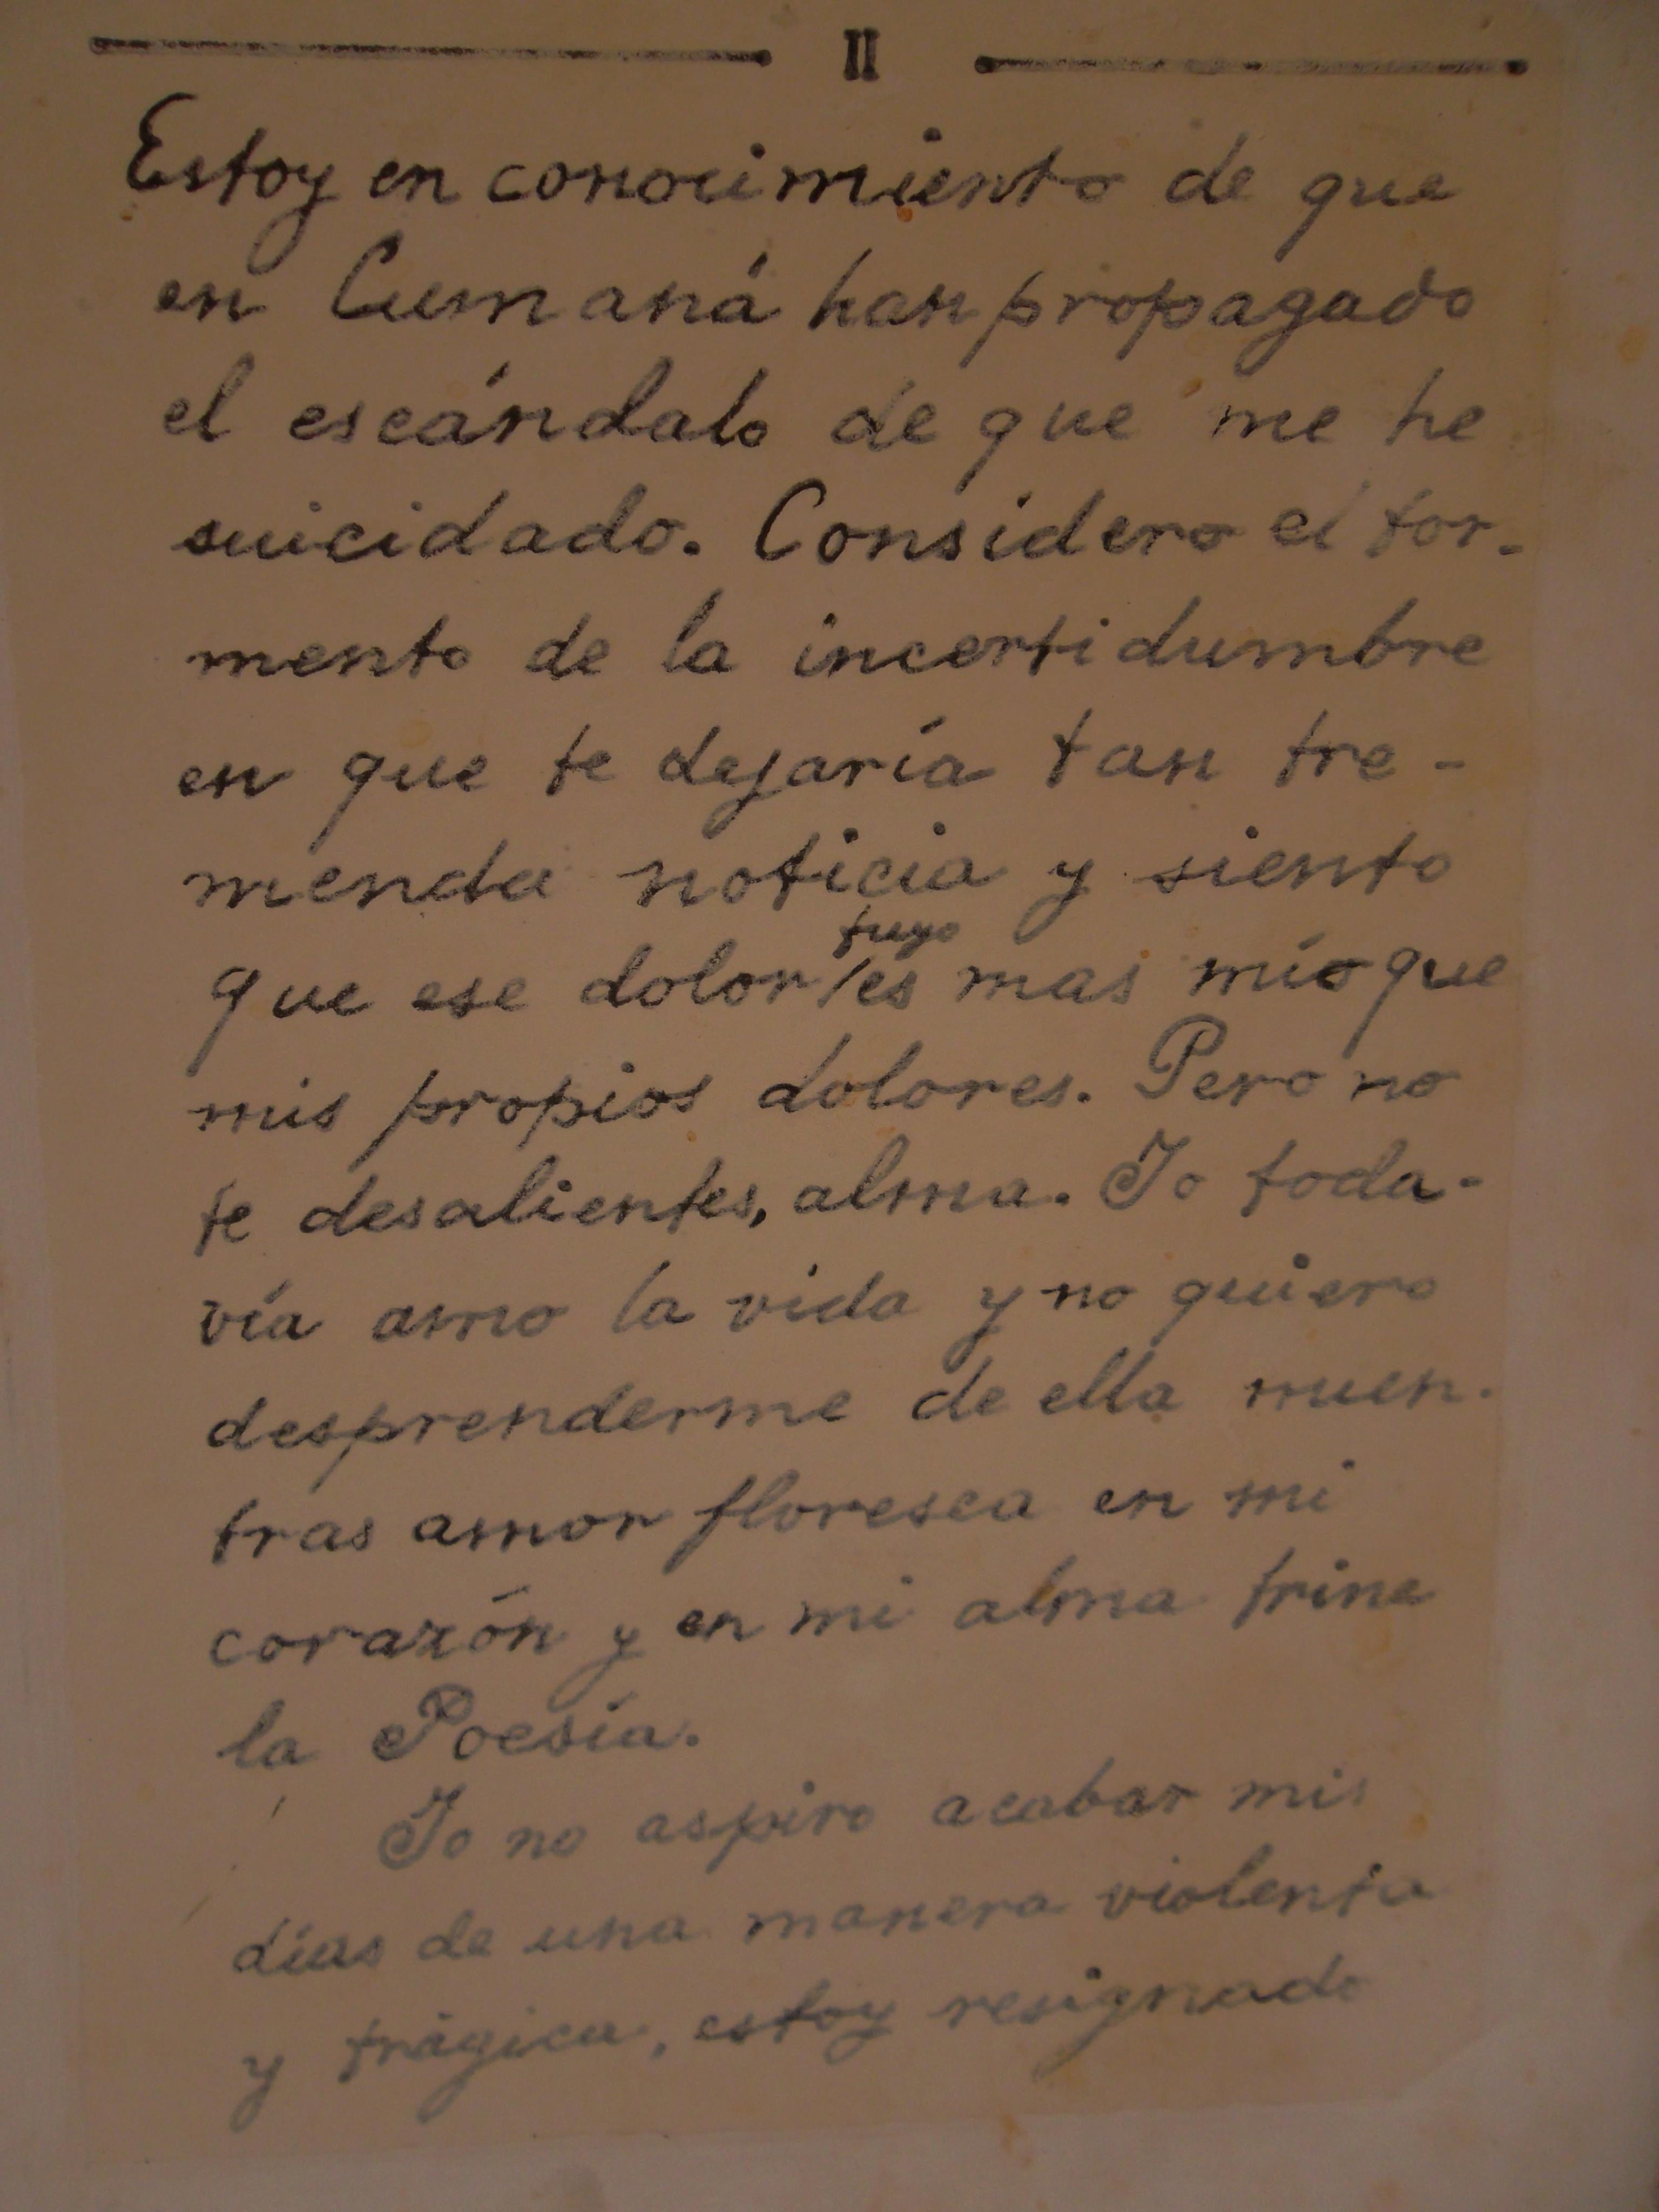 II
Estoy en conocimiento de que
en Cumaná han propagado
el escándalo de que me he
suicidado. Considero el tor-
mento de la incertidumbre
en que te dejaría tan tre-
menda noticia y siento
tuyo
que ese dolor/es mas mío que
mis propios dolores. Pero no
te desalientes, alma. Yo toda-
vía amo la vida y no quiero
desprenderme de ella mien-
tras amor floresca en mi
corazón y en mi alma trine
la Poesía.
Yo no aspiro acabar mis
días de una manera violenta
y trágica, estoy resignado